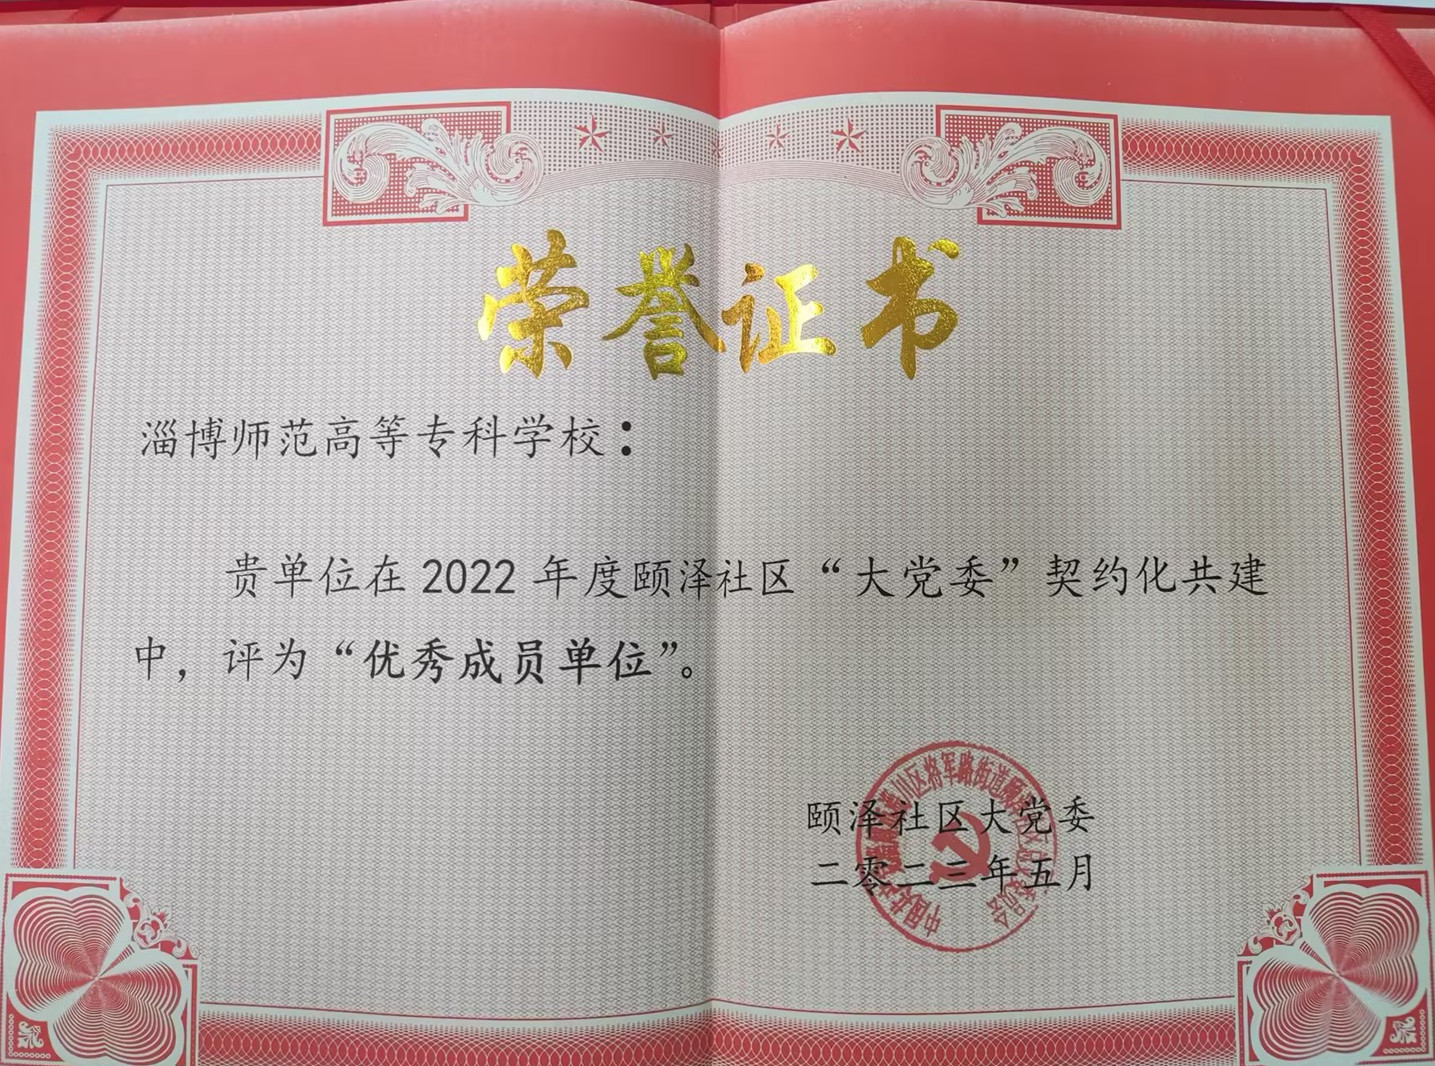 荣誉证书
淄博师范高等专科学校：
贵单位在 2022 年度颐泽社区“大党委”契约化共建
中，评为“优秀成员单位”。
颐泽社区大党委
二零二三年五月
川区将军路街道